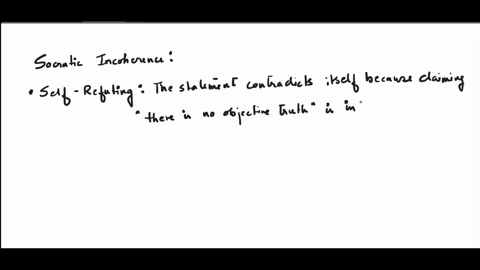 Socratic Incoherence:
• Self-Refuting: The statement contradicts itself because claiming
"there is no objective truth" is in